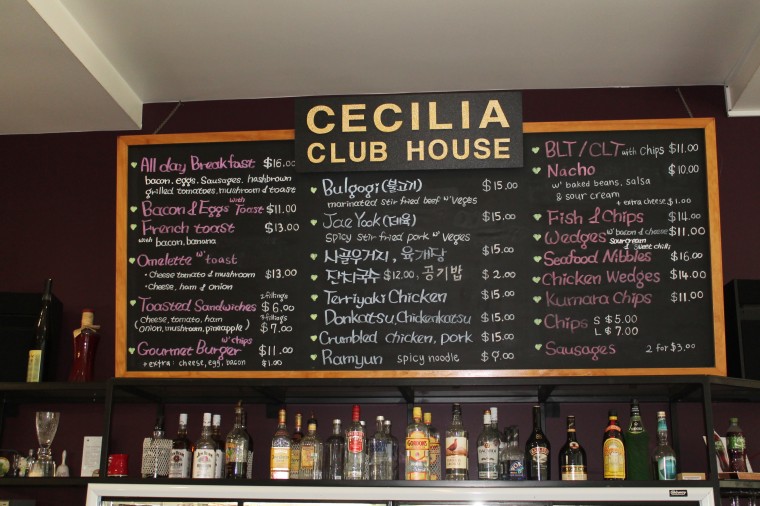 CECILIA
CLUB HOUSE
All day Breakfast $16.00
bacon, eggs, Sausages, hashbrown
grilled tomatoes, mushroom & toast
Bacon & Eggs with Toast $11.00
French toast $13.00
with bacon, banana
Omelette w' toast
• Cheese tomato & mushroom $13.00
• Cheese, ham & onion
Toasted Sandwiches 2 fillings $6.00
Cheese, tomato, ham 3 fillings
(onion, mushroom, pineapple) $7.00
Gourmet Burger w' chips $11.00
+ extra: cheese, egg, bacon $1.00
Bulgogi (불고기) $15.00
marinated stir fried beef w' Veges
Jae Yook (제육) $15.00
Spicy stir fried pork w' Veges
사골우거지, 육개장 $15.00
잔치국수 $12.00, 공기밥 $2.00
Terriyaki Chicken $15.00
Donkatsu, Chickenkatsu $15.00
Crumbled chicken, pork $15.00
Ramyun spicy noodle $9.00
BLT / CLT with Chips $11.00
Nacho $10.00
w' baked beans, salsa
& sour cream
+ extra cheese $1.00
Fish & Chips $14.00
Wedges w' bacon & cheese $11.00
Sour cream & Sweet chilli
Seafood Nibbles $16.00
Chicken Wedges $14.00
Kumara Chips $11.00
Chips S $5.00
L $7.00
Sausages 2 for $3.00